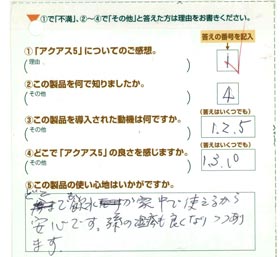 ①で「不満」、②〜④で「その他」と答えた方は理由をお書きください。
答えの番号を記入
①「アクアス5」についてのご感想。
理由
1
②この製品を何で知りましたか。
その他
4
③この製品を導入された動機は何ですか。
(答えはいくつでも)
その他
1.2.5
④どこで「アクアス5」の良さを感じますか。
(答えはいくつでも)
その他
1.3.10
⑤この製品の使い心地はいかがですか。
まで飲水 が家中で使えるから
安心です。孫の も良くなりつつあり
ます